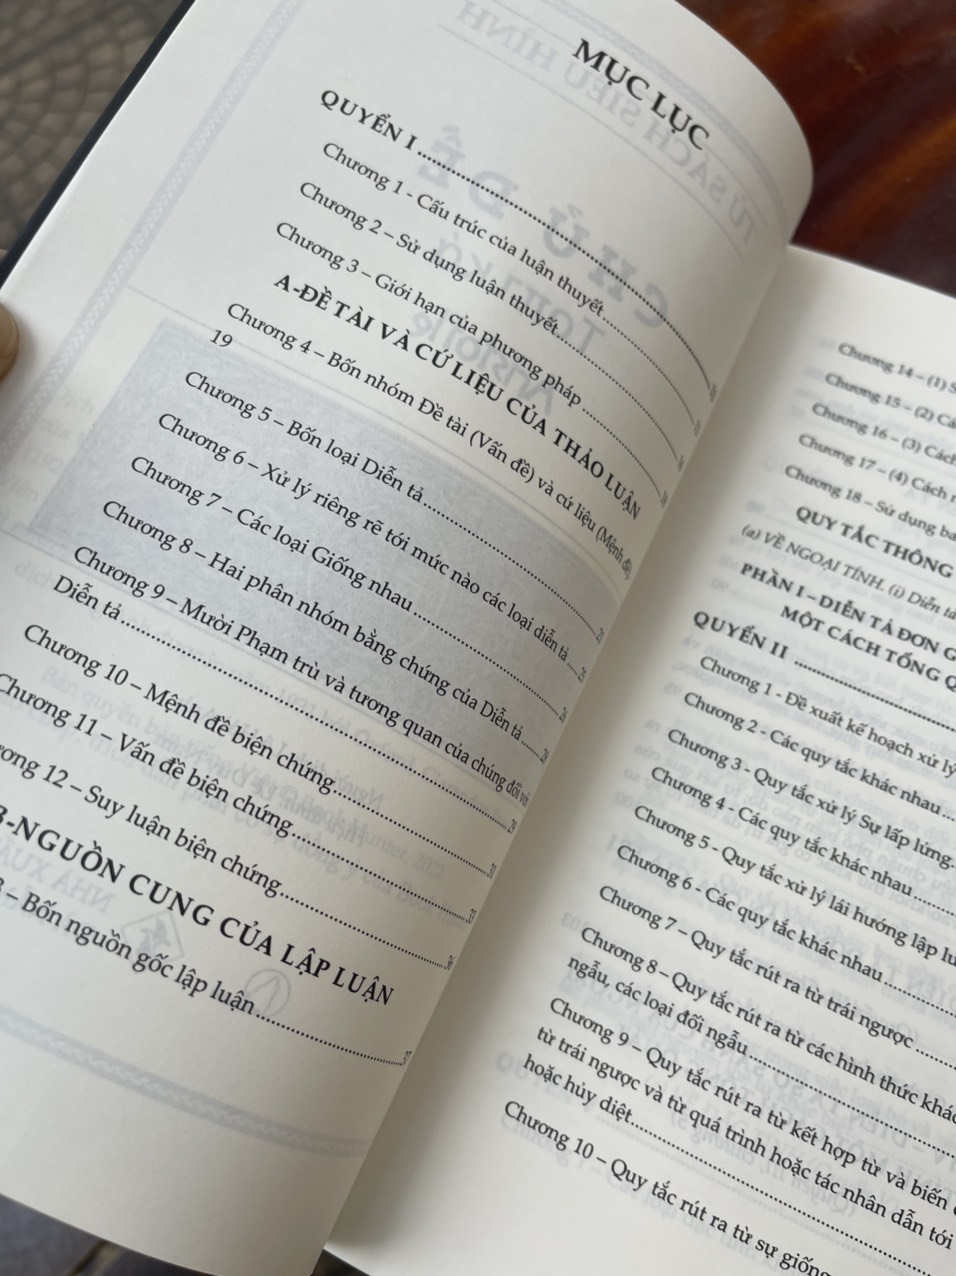 MỤC LỤC
QUYỂN I
Chương 1 - Cấu trúc của luận thuyết
Chương 2 – Sử dụng luận thuyết
Chương 3 – Giới hạn của phương pháp
A-ĐỀ TÀI VÀ CỨ LIỆU CỦA THẢO LUẬN
Chương 4 – Bốn nhóm Đề tài (Vấn đề) và cứ liệu (Mệnh đề)
19
Chương 5 – Bốn loại Diễn tả
Chương 6 – Xử lý riêng rẽ tới mức nào các loại diễn tả 25
Chương 7 – Các loại Giống nhau 26
Chương 8 – Hai phân nhóm bằng chứng của Diễn tả
Chương 9 – Mười Phạm trù và tương quan của chúng đối với
Diễn tả 29
Chương 10 – Mệnh đề biện chứng 31
Chương 11 – Vấn đề biện chứng 33
ương 12 – Suy luận biện chứng 36
B-NGUỒN CUNG CỦA LẬP LUẬN
3 – Bốn nguồn gốc lập luận 37
Chương 14 – (1) S
Chương 15 – (2) Cá
Chương 16 – (3) Cách
Chương 17 – (4) Cách
Chương 18 – Sử dụng ba
QUY TẮC THÔNG
(a) VỀ NGOẠI TÍNH. (i) Diễn tả
PHẦN I – DIỄN TẢ ĐƠN G
MỘT CÁCH TỔNG Q
QUYỂN II
Chương 1 - Đề xuất kế hoạch xử lý
Chương 2 - Các quy tắc khác nhau
Chương 3 - Quy tắc xử lý Sự lấp lửng.
Chương 4 - Các quy tắc khác nhau
Chương 5 - Quy tắc xử lý lái hướng lập lu
Chương 6 - Các quy tắc khác nhau
Chương 7 – Quy tắc rút ra từ trái ngược
Chương 8 – Quy tắc rút ra từ các hình thức khác
ngẫu, các loại đối ngẫu
Chương 9 – Quy tắc rút ra từ kết hợp từ và biến
từ trái ngược và từ quá trình hoặc tác nhân dẫn tới
hoặc hủy diệt
Chương 10 – Quy tắc rút ra từ sự giống